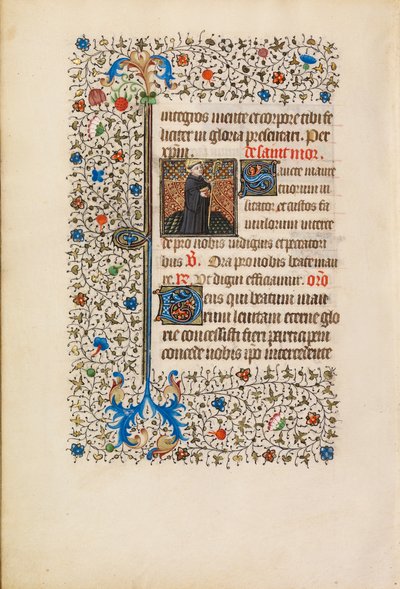 integros mente et corpore tibi fe
liciter in gloria presentari. Per
xpm. De sanct mor.
Sancte maure
senorum
tator et custos fa
mulorum interce
de pro nobis indignis et peccatori
bus V. Ora pro nobis beate mau
re. R. Vt digni efficiamur. oro
Deus qui beatum mau
rum leuitam eterne glo
rie concessisti fieri participem
concede nobis ipo intercedente